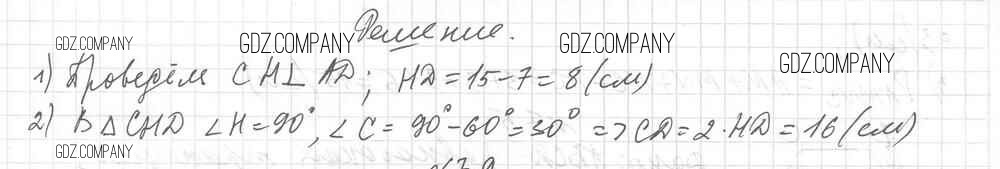 Решение.
GDZ.COMPANY GDZ.COMPANY GDZ.COMPANY GDZ.COMPANY
1) Проведём CH⊥AD; HD=15-7=8(см)
2) В △CHD ∠H=90°, ∠C=90°-60°=30° => CD=2·HD=16(см)
GDZ.COMPANY